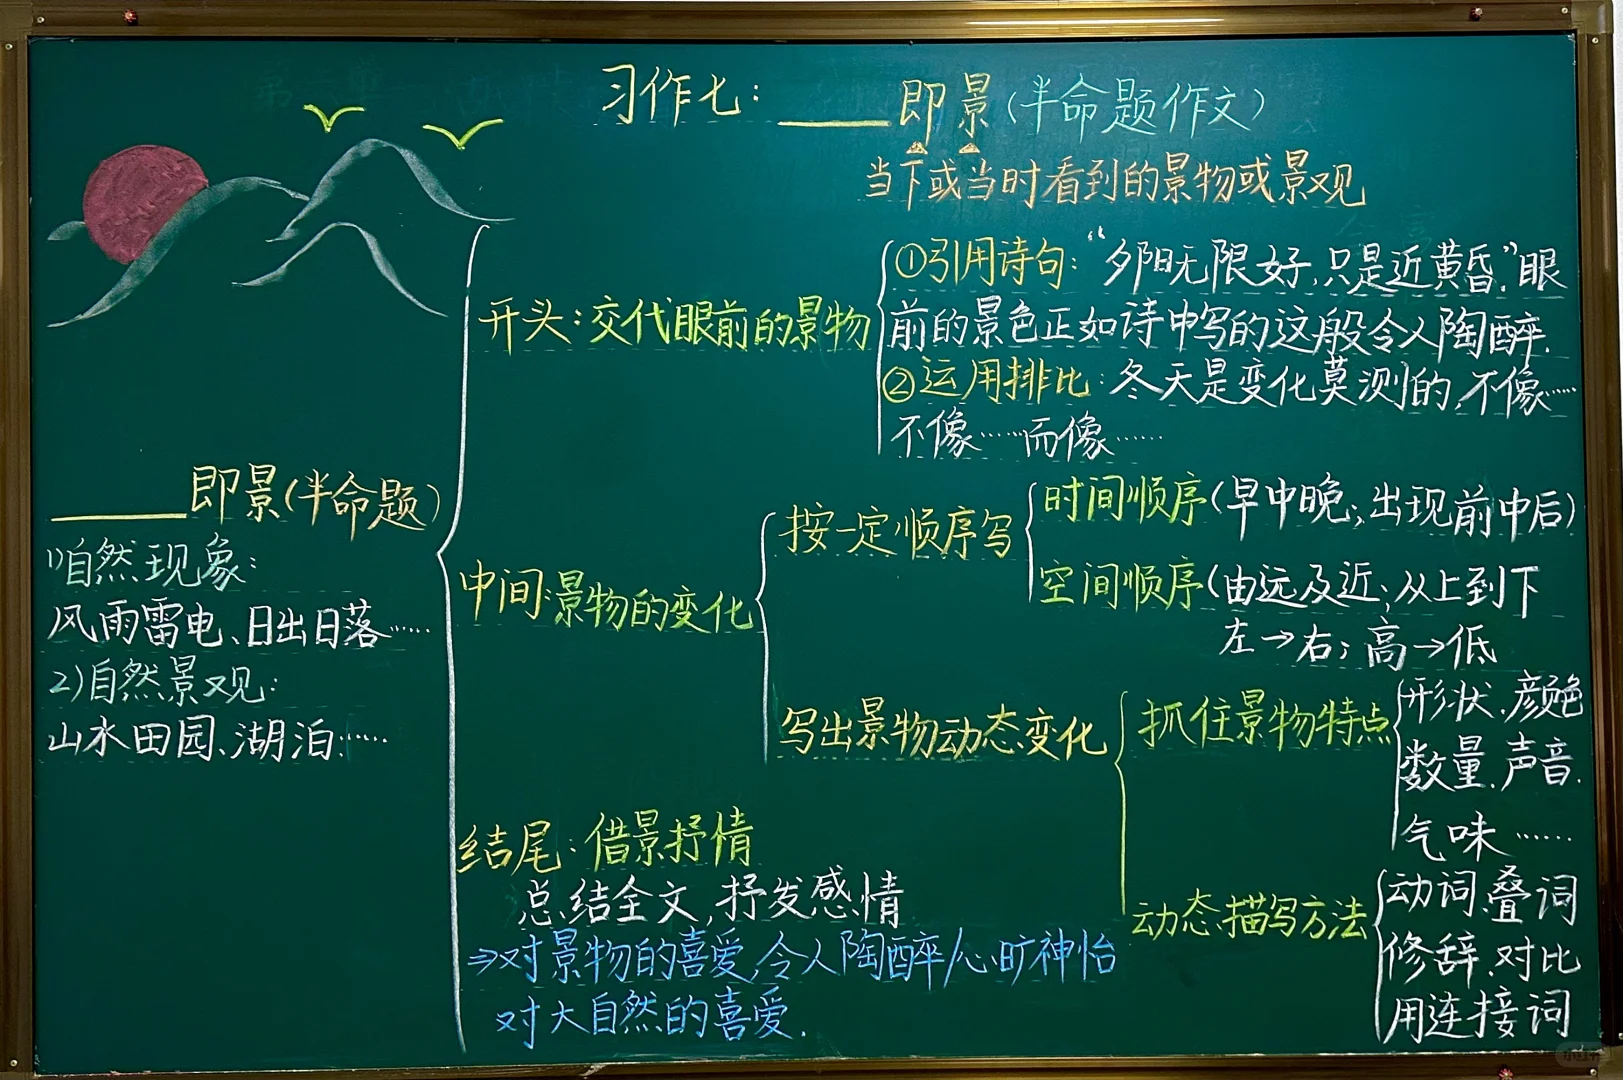 习作七：____即景（半命题作文）
当下或当时看到的景物或景观
____即景（半命题）
1）自然现象：
风雨雷电、日出日落……
2）自然景观：
山水田园、湖泊……
开头：交代眼前的景物
①引用诗句：“夕阳无限好，只是近黄昏.”眼
前的景色正如诗中写的这般令人陶醉.
②运用排比：冬天是变化莫测的，不像……
不像……而像……
中间：景物的变化
按一定顺序写
时间顺序（早中晚；出现前中后）
空间顺序（由远及近；从上到下
左→右；高→低
写出景物动态变化
抓住景物特点
形状.颜色
数量.声音.
气味……
动态描写方法
动词.叠词
修辞.对比
用连接词
结尾：借景抒情
总结全文，抒发感情
⇒对景物的喜爱，令人陶醉/心旷神怡
对大自然的喜爱.